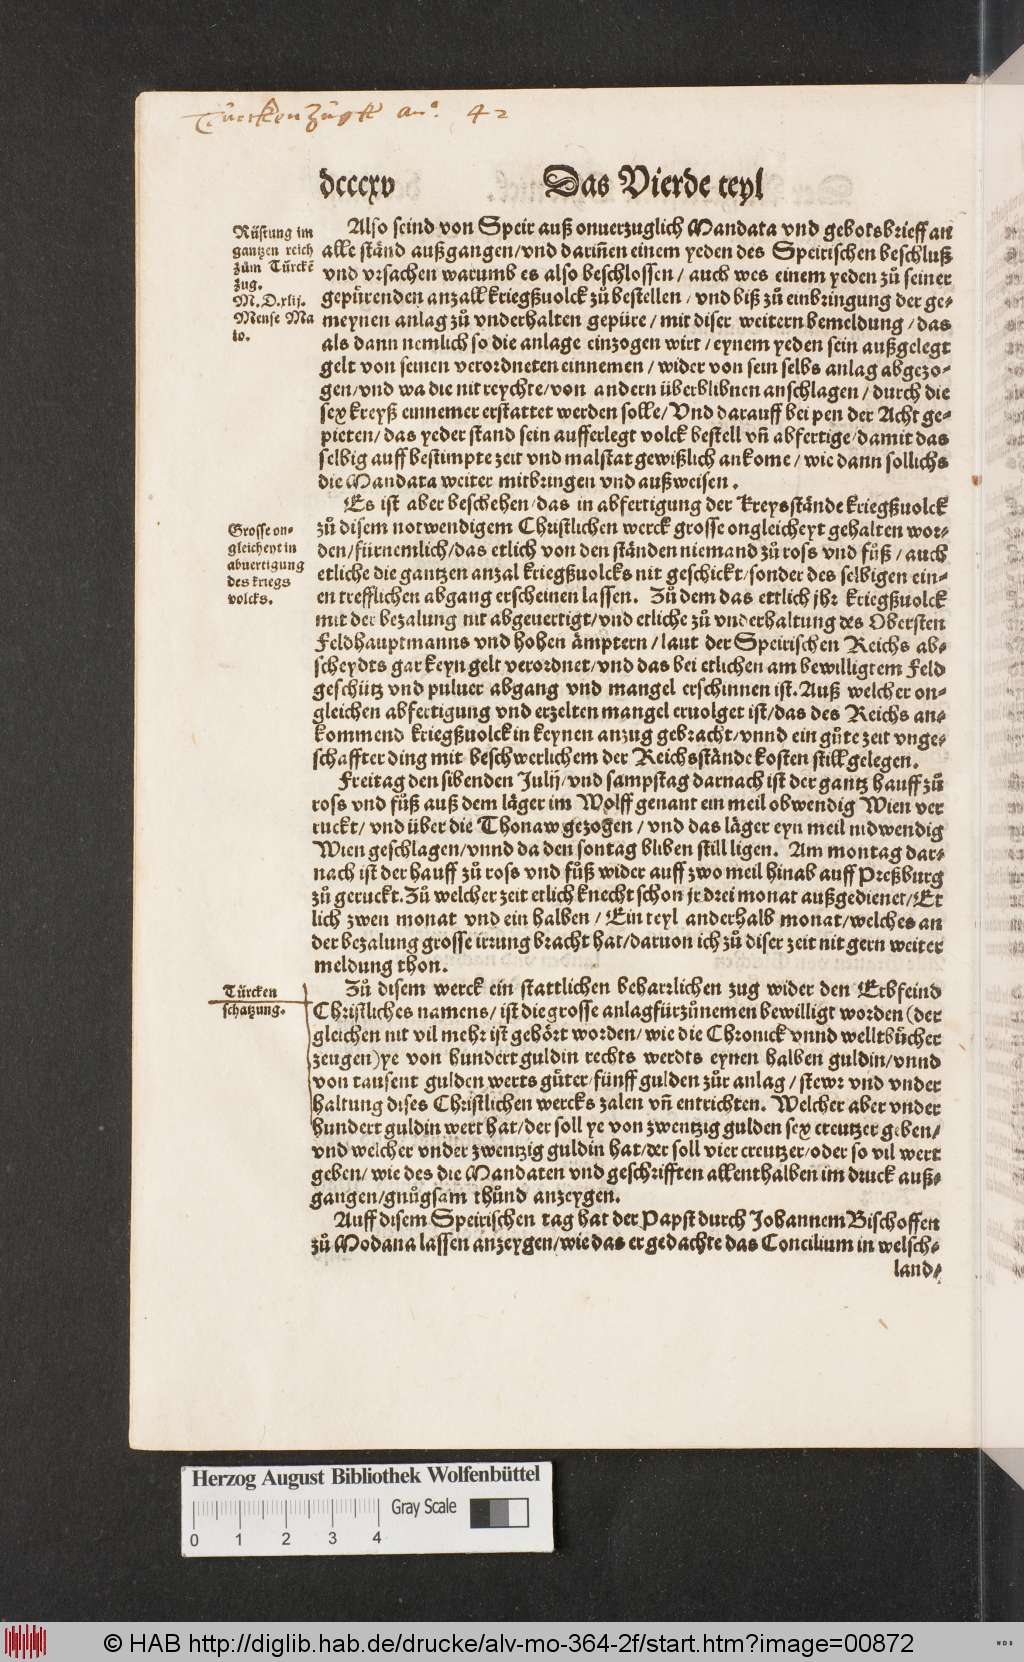 Türckenzugk an°. 42
dcccxv
Das Vierde teyl
Rüstung im
gantzen reich
zům Türckē
zug.
M.D.xlij.
Mense Ma
io.
Also seind von Speir auß onuerzuglich Mandata vnd gebotsbrieff an
alle ständ außgangen/vnd dariñen einem yeden des Speirischen beschluß
vnd vrsachen warumb es also beschlossen/ auch wes einem yeden zů seiner
gepürenden anzall kriegßuolck zů bestellen/ vnd biß zů einbringung der ge-
meynen anlag zů vnderhalten gepüre/ mit diser weitern bemeldung/ das
als dann nemlich so die anlage einzogen wirt/ eynem yeden sein außgelegt
gelt von seinen verordneten einnemen/ wider von sein selbs anlag abgezo-
gen/vnd wa die nit reychte/von andern überblibnen anschlagen/ durch die
sex kreyß einnemer erstattet werden solle/ Vnd darauff bei pen der Acht ge-
pieten/ das yeder stand sein aufferlegt volck bestell vñ abfertige/damit das
selbig auff bestimpte zeit vnd malstat gewißlich ankome/ wie dann sollichs
die Mandata weiter mitbringen vnd außweisen.
Grosse on-
gleicheyt in
abuertigung
des kriegs
volcks.
Es ist aber beschehen/das in abfertigung der Kreysstände kriegßuolck
zů disem notwendigem Christlichen werck grosse ongleicheyt gehalten wor-
den/fürnemlich/das etlich von den ständen niemand zů ross vnd fůß/ auch
etliche die gantzen anzal kriegßuolcks nit geschickt/sonder des selbigen ein-
en trefflichen abgang erscheinen lassen. Zů dem das ettlich jhr kriegßuolck
mit der bezalung nit abgeuertigt/vnd etliche zů vnderhaltung des Obersten
Feldhauptmanns vnd hohen ämptern/ laut der Speirischen Reichs ab-
scheydts gar keyn gelt verordnet/vnd das bei etlichen am bewilligtem Feld
geschütz vnd puluer abgang vnd mangel erschinnen ist. Auß welcher on-
gleichen abfertigung vnd erzelten mangel eruolget ist/das des Reichs an-
kommend kriegßuolck in keynen anzug gebracht/vnnd ein gůte zeit vnge-
schaffter ding mit beschwerlichem der Reichsstände kosten still gelegen.
Freitag den sibenden Julij/vnd sampstag darnach ist der gantz hauff zů
ross vnd fůß auß dem läger im Wolff genant ein meil obwendig Wien ver
ruckt/ vnd über die Thonaw gezogen/ vnd das läger eyn meil nidwendig
Wien geschlagen/vnnd da den sontag bliben still ligen. Am montag dar-
nach ist der hauff zů ross vnd fůß wider auff zwo meil hinab auff Preßburg
zů geruckt. Zů welcher zeit etlich knecht schon jr drei monat außgedienet/Et
lich zwen monat vnd ein halben/ Ein teyl anderhalb monat/welches an
der bezalung grosse irrung bracht hat/daruon ich zů diser zeit nit gern weiter
meldung thon.
Türcken
schatzung.
Zů disem werck ein stattlichen beharrlichen zug wider den Erbfeind
Christliches namens/ ist die grosse anlag fürzůnemen bewilligt worden (der
gleichen nit vil mehr ist gehört worden/ wie die Chronick vnnd welltbücher
zeugen) ye von hundert guldin rechts werdts eynen halben guldin/vnnd
von tausent gulden werts gůter/fünff gulden zůr anlag/ stewr vnd vnder
haltung dises Christlichen wercks zalen vñ entrichten. Welcher aber vnder
hundert guldin wert hat/der soll ye von zwentzig gulden sex creutzer geben/
vnd welcher vnder zwentzig guldin hat/der soll vier creutzer/oder so vil wert
geben/ wie des die Mandaten vnd geschrifften allenthalben im druck auß-
gangen/gnůgsam thůnd anzeygen.
Auff disem Speirischen tag hat der Papst durch Johannem Bischoffen
zů Modana lassen anzeygen/wie das er gedachte das Concilium in welsch-
land/
Herzog August Bibliothek Wolfenbüttel
Gray Scale
0 1 2 3 4
© HAB http://diglib.hab.de/drucke/alv-mo-364-2f/start.htm?image=00872